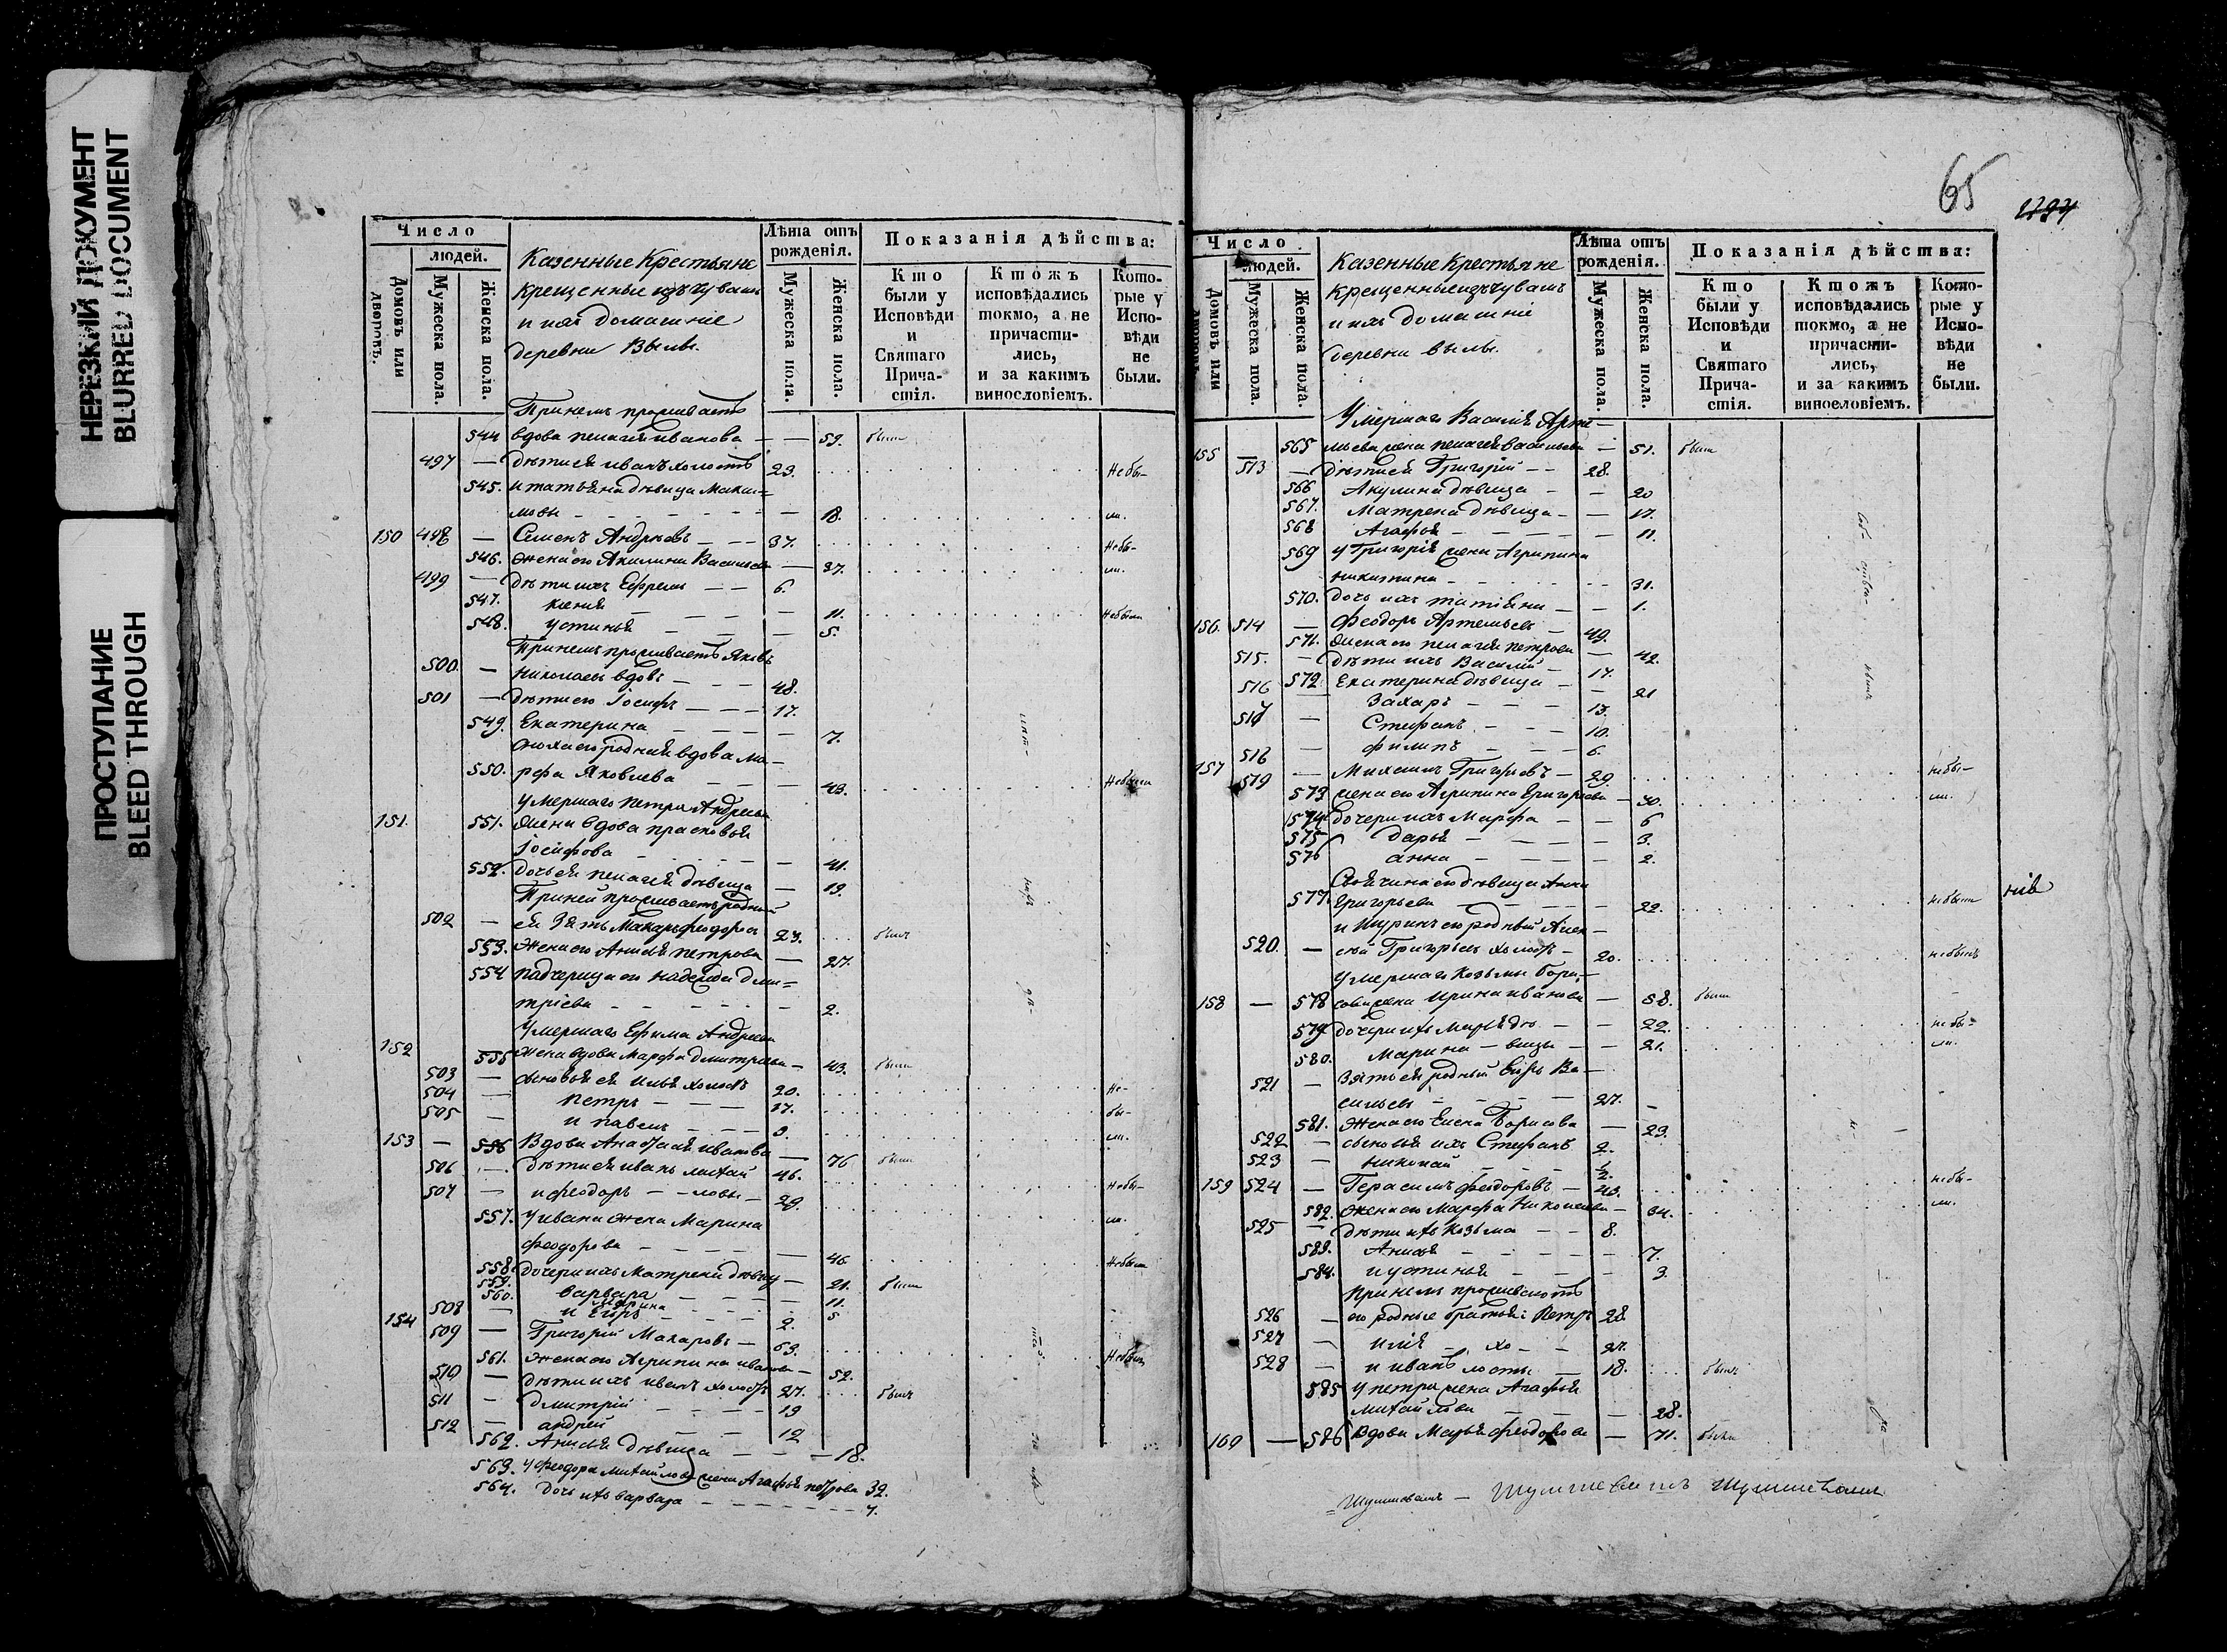 НЕРЕЗКИЙ ДОКУМЕНТ
BLURRED DOCUMENT
ПРОСТУПАНИЕ
BLEED THROUGH
Число
людей.
Домовъ или дворовъ.
Мужеска пола.
Женска пола.
Казенные Крестьяне
крещенные изъ чувашъ
и ихъ домашніе
деревни Вылы.
Лѣта отъ рожденія.
Мужеска пола.
Женска пола.
Показанія дѣйства:
Кто были у Исповѣди и Святаго Прича-стія.
Ктожъ исповѣдались токмо, а не причасти-лись, и за какимъ винословіемъ.
Кото-рые у Испо-вѣди не были.
При немъ проживаетъ
544 вдова пелагея иванова — — 59. были
497 — Дѣти ея иванъ холостъ 23. Небы-
545. и татьяна дѣвица Макси=
мовы — — 18. ли.
150 498 — Семенъ Андреевъ — — 37. Небы-
546. жена его Акилина Васильева — 37. ли.
499 — Дѣти ихъ Ефремъ — — 6.
547. Ксенія — — 11. Небыли
548. устинья — — 5.
При немъ проживаетъ Яковъ
500. — Николаевъ вдовъ — — 48.
501 — Дѣти его Іосифъ — — 17.
549. Екатерина — — 7.
сноха его родная вдова Ма-
550. рфа Яковлева — — 43. Небыли
умершаго петра Андреева
151. 551. жена вдова прасковья
Іосифова — — 41.
552. Дочь ея пелагея дѣвица — 19.
При ней проживаетъ родный
502 — ей Зять Макаръ феодоровъ 23. былъ
553. Жена его Анисья петрова — 27.
554 падчерица его надежда дми=
тріева — — 2.
умершаго Ефима Андреева
152 555 Жена вдова Марфа дмитріева — 43. были
503 — сыновья ея Илья холостъ 20. Не-
504 — петръ — — 17. бы-
505 — и павелъ — — 9. ли.
153 — 556 Вдова Анастасія иванова — 76 были
506 — Дѣти ея иванъ михай 46.
507 — и феодоръ — ловы — 29. Небы-
557. у ивана жена Марина ли.
феодорова — — 46. Небыли
558. дочери ихъ Матрена дѣвиц — 21. были
559. варвара — — 11.
560. Марина 5
508 — и Егоръ — — 2.
154 509 — Григорій Макаровъ — 69.
561. Жена его Агрипина иванова — 52. Небыли
510 — Дѣти ихъ иванъ холостъ 27. былъ
511 — дмитрій — — 19
512 — андрей — — 12
562. Анисья дѣвица — — 18.
563. у феодора михайлова жена Агафья петрова 32.
564. дочь ихъ варвара — — 7.
65
Число
людей.
Домовъ или дворовъ.
Мужеска пола.
Женска пола.
Казенные Крестьяне
крещенные изъ чувашъ
и ихъ домашніе
деревни вылы.
Лѣта отъ рожденія.
Мужеска пола.
Женска пола.
Показанія дѣйства:
Кто были у Исповѣди и Святаго Прича-стія.
Ктожъ исповѣдались токмо, а не причасти-лись, и за какимъ винословіемъ.
Кото-рые у Испо-вѣди не были.
умершаго Василія Арте—
155 565 мьева жена пелагея васильева — 51. были
513 — Дѣти ей Григорій — — 28.
566 Акулина дѣвица — — 20
567. Матрена дѣвица — — 17.
568 Агафья — — 11.
569 у Григорія жена Агрипина
никитина — — 31.
570. дочь ихъ татіяна — — 1.
156. 514 — Феодоръ Артемьевъ — 49.
571. жена его пелагея петрова — 42.
515. — Дѣти ихъ Василій — 17.
572. Екатерина дѣвица — — 21
516 Захаръ — — 13.
517 — Стефанъ — — 10.
518 — филипъ — — 6.
157 519 — Михаилъ Григорьевъ — 29. небы—
573 жена его Агрипина Григорьева — 30. ли.
574 дочери ихъ Марфа — — 6
575 дарья — — 3.
576 анна — — 2.
Своячина его дѣвица Анна
577. Григорьева — — 22. небыли
и Шуринъ его родный Алек—
520. — сѣй Григорьевъ холостъ — 20. небылъ
умершаго Козьмы Бори—
158 — 578 сова жена Ирина иванова — 58. были
579 дочери ихъ Марья дѣ — — 22. небы-
580. Марина — вицы — — 21. ли.
521 — Зять ея родный Егоръ Ва—
сильевъ — — 27.
581. Жена его Елена Борисова — 23.
522 — сыновья ихъ Стефанъ 2.
523 — николай — — ½.
159 524 — Герасимъ феодоровъ — 43. небы-
582. Жена его Марфа Николаева — 34. ли.
525 — Дѣти ихъ Козьма — — 8.
583. Анисья — — 7.
584. и устинья — — 3.
При немъ проживаютъ
526 — его родные братья: Петръ 28
527 — илія — хо — 27.
528 — и иванъ лосты — 18. былъ
585 у петра жена Агафья
михайлова — — 28.
160 — 586 Вдова Марья феодорова — 71. были